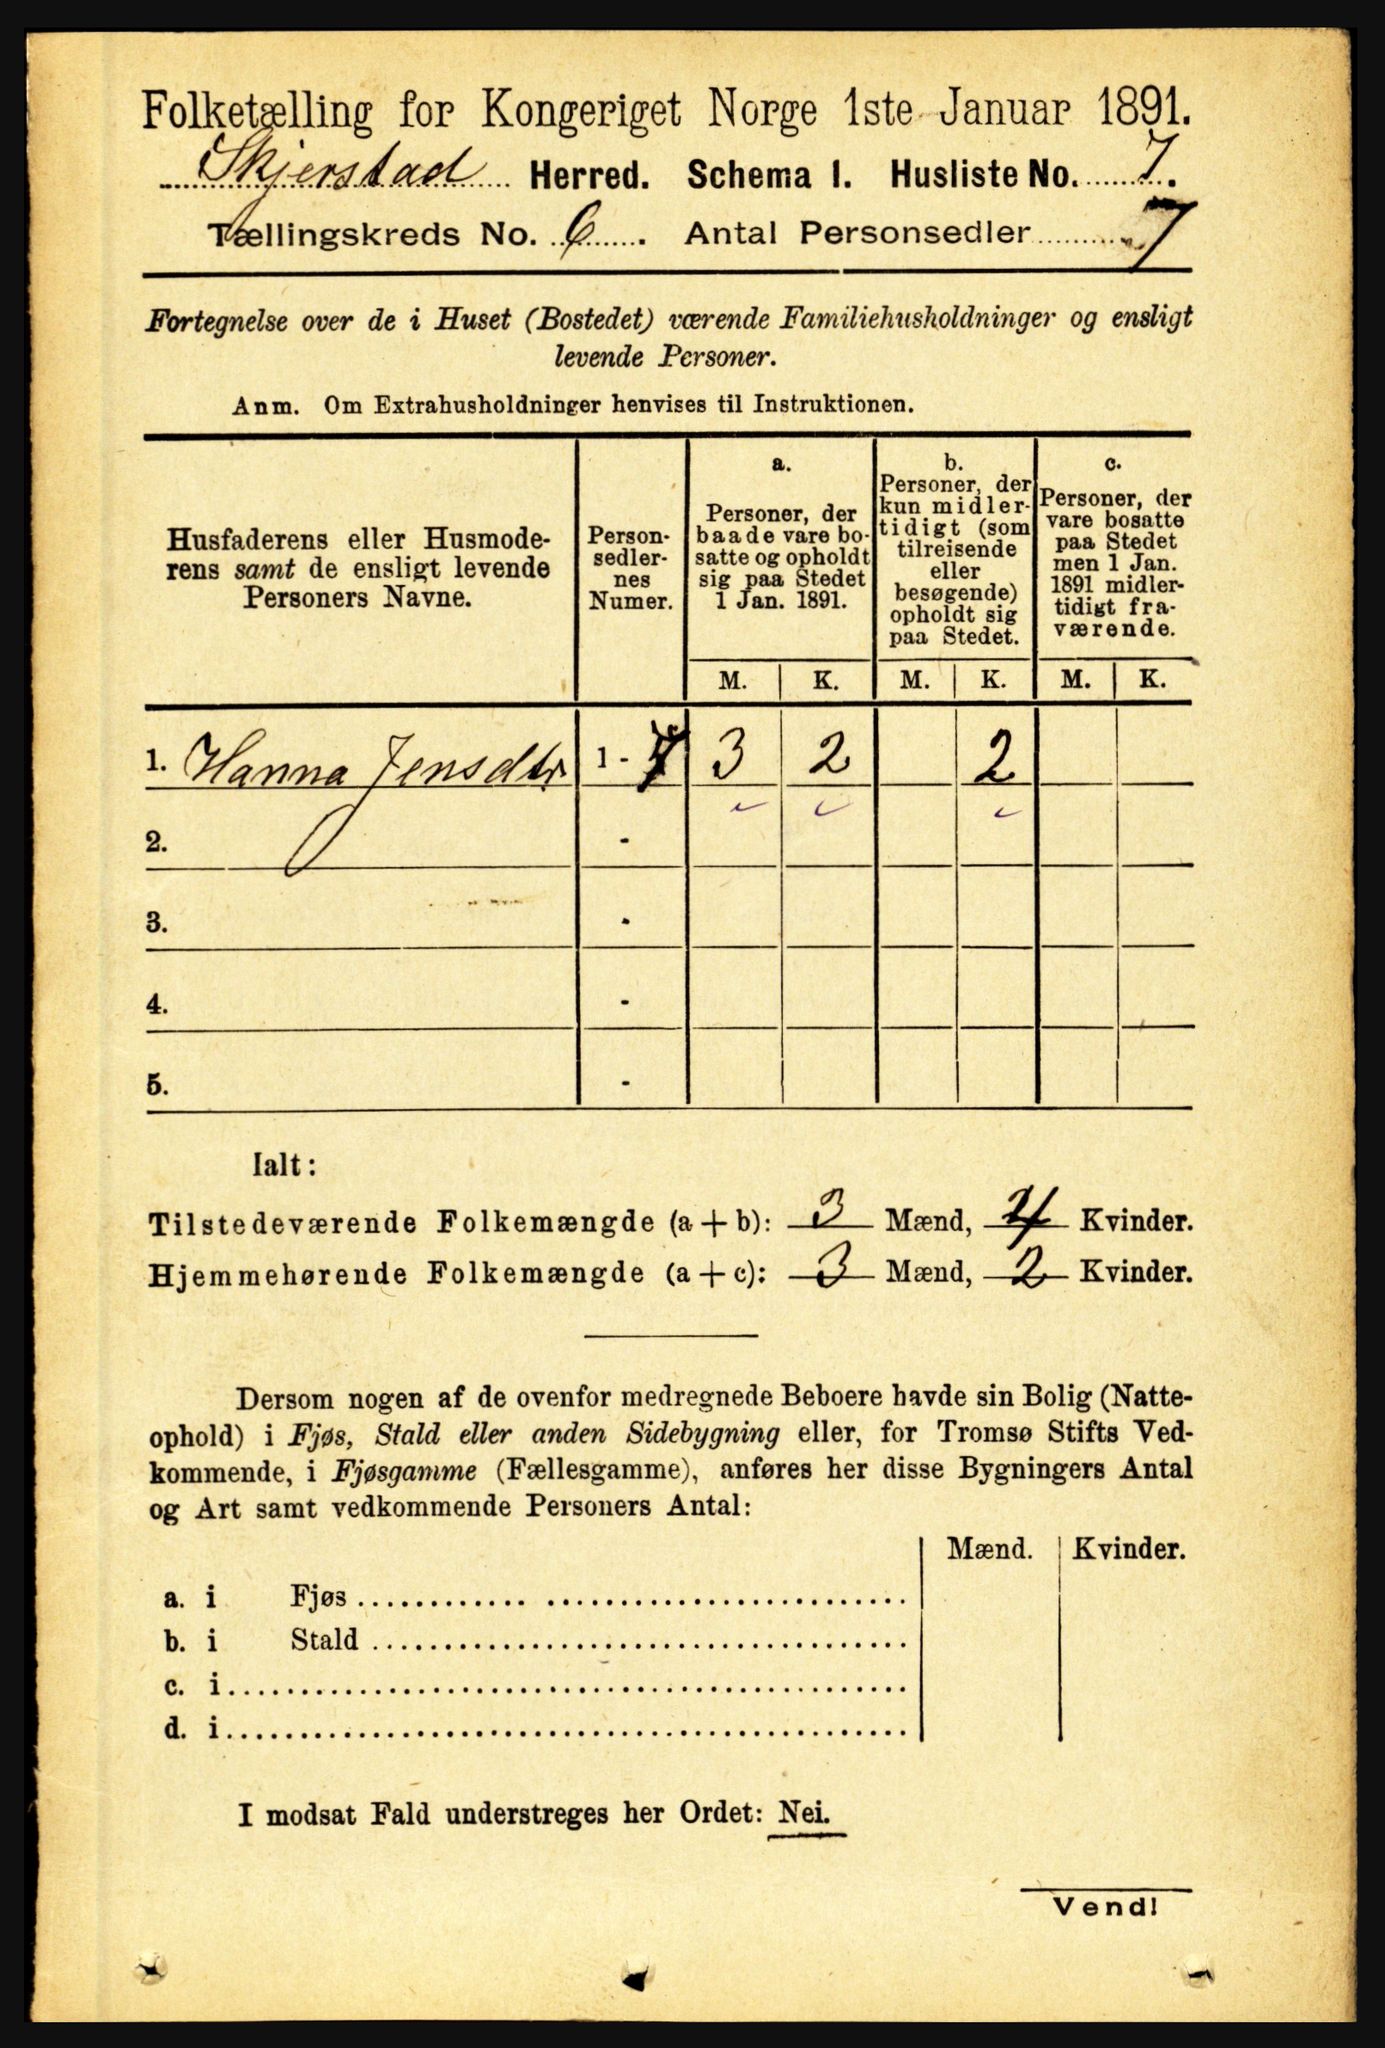 Folketælling for Kongeriget Norge 1ste Januar 1891.
Skjerstad Herred. Schema 1. Husliste No. 7.
Tællingskreds No. 6. Antal Personsedler 7
Fortegnelse over de i Huset (Bostedet) værende Familiehusholdninger og ensligt
levende Personer.
Anm. Om Extrahusholdninger henvises til Instruktionen.
Husfaderens eller Husmode-
rens samt de ensligt levende
Personers Navne.
Person-
sedler-
nes
Numer.
a.
Personer, der
baade vare bo-
satte og opholdt
sig paa Stedet
1 Jan. 1891.
b.
Personer, der
kun midler-
tidigt (som
tilreisende
eller
besøgende)
opholdt sig
paa Stedet.
c.
Personer, der
vare bosatte
paa Stedet
men 1 Jan.
1891 midler-
tidigt fra-
værende.
M. K. M. K. M. K.
1. Hanna Jensdtr 1 - 7 3 2 2
2. -
3. -
4. -
5. -
Ialt:
Tilstedeværende Folkemængde (a + b): 3 Mænd, 4 Kvinder.
Hjemmehørende Folkemængde (a + c): 3 Mænd, 2 Kvinder.
Dersom nogen af de ovenfor medregnede Beboere havde sin Bolig (Natte-
ophold) i Fjøs, Stald eller anden Sidebygning eller, for Tromsø Stifts Ved-
kommende, i Fjøsgamme (Fællesgamme), anføres her disse Bygningers Antal
og Art samt vedkommende Personers Antal:
Mænd. Kvinder.
a. i Fjøs
b. i Stald
c. i
d. i
I modsat Fald understreges her Ordet: Nei.
Vend!